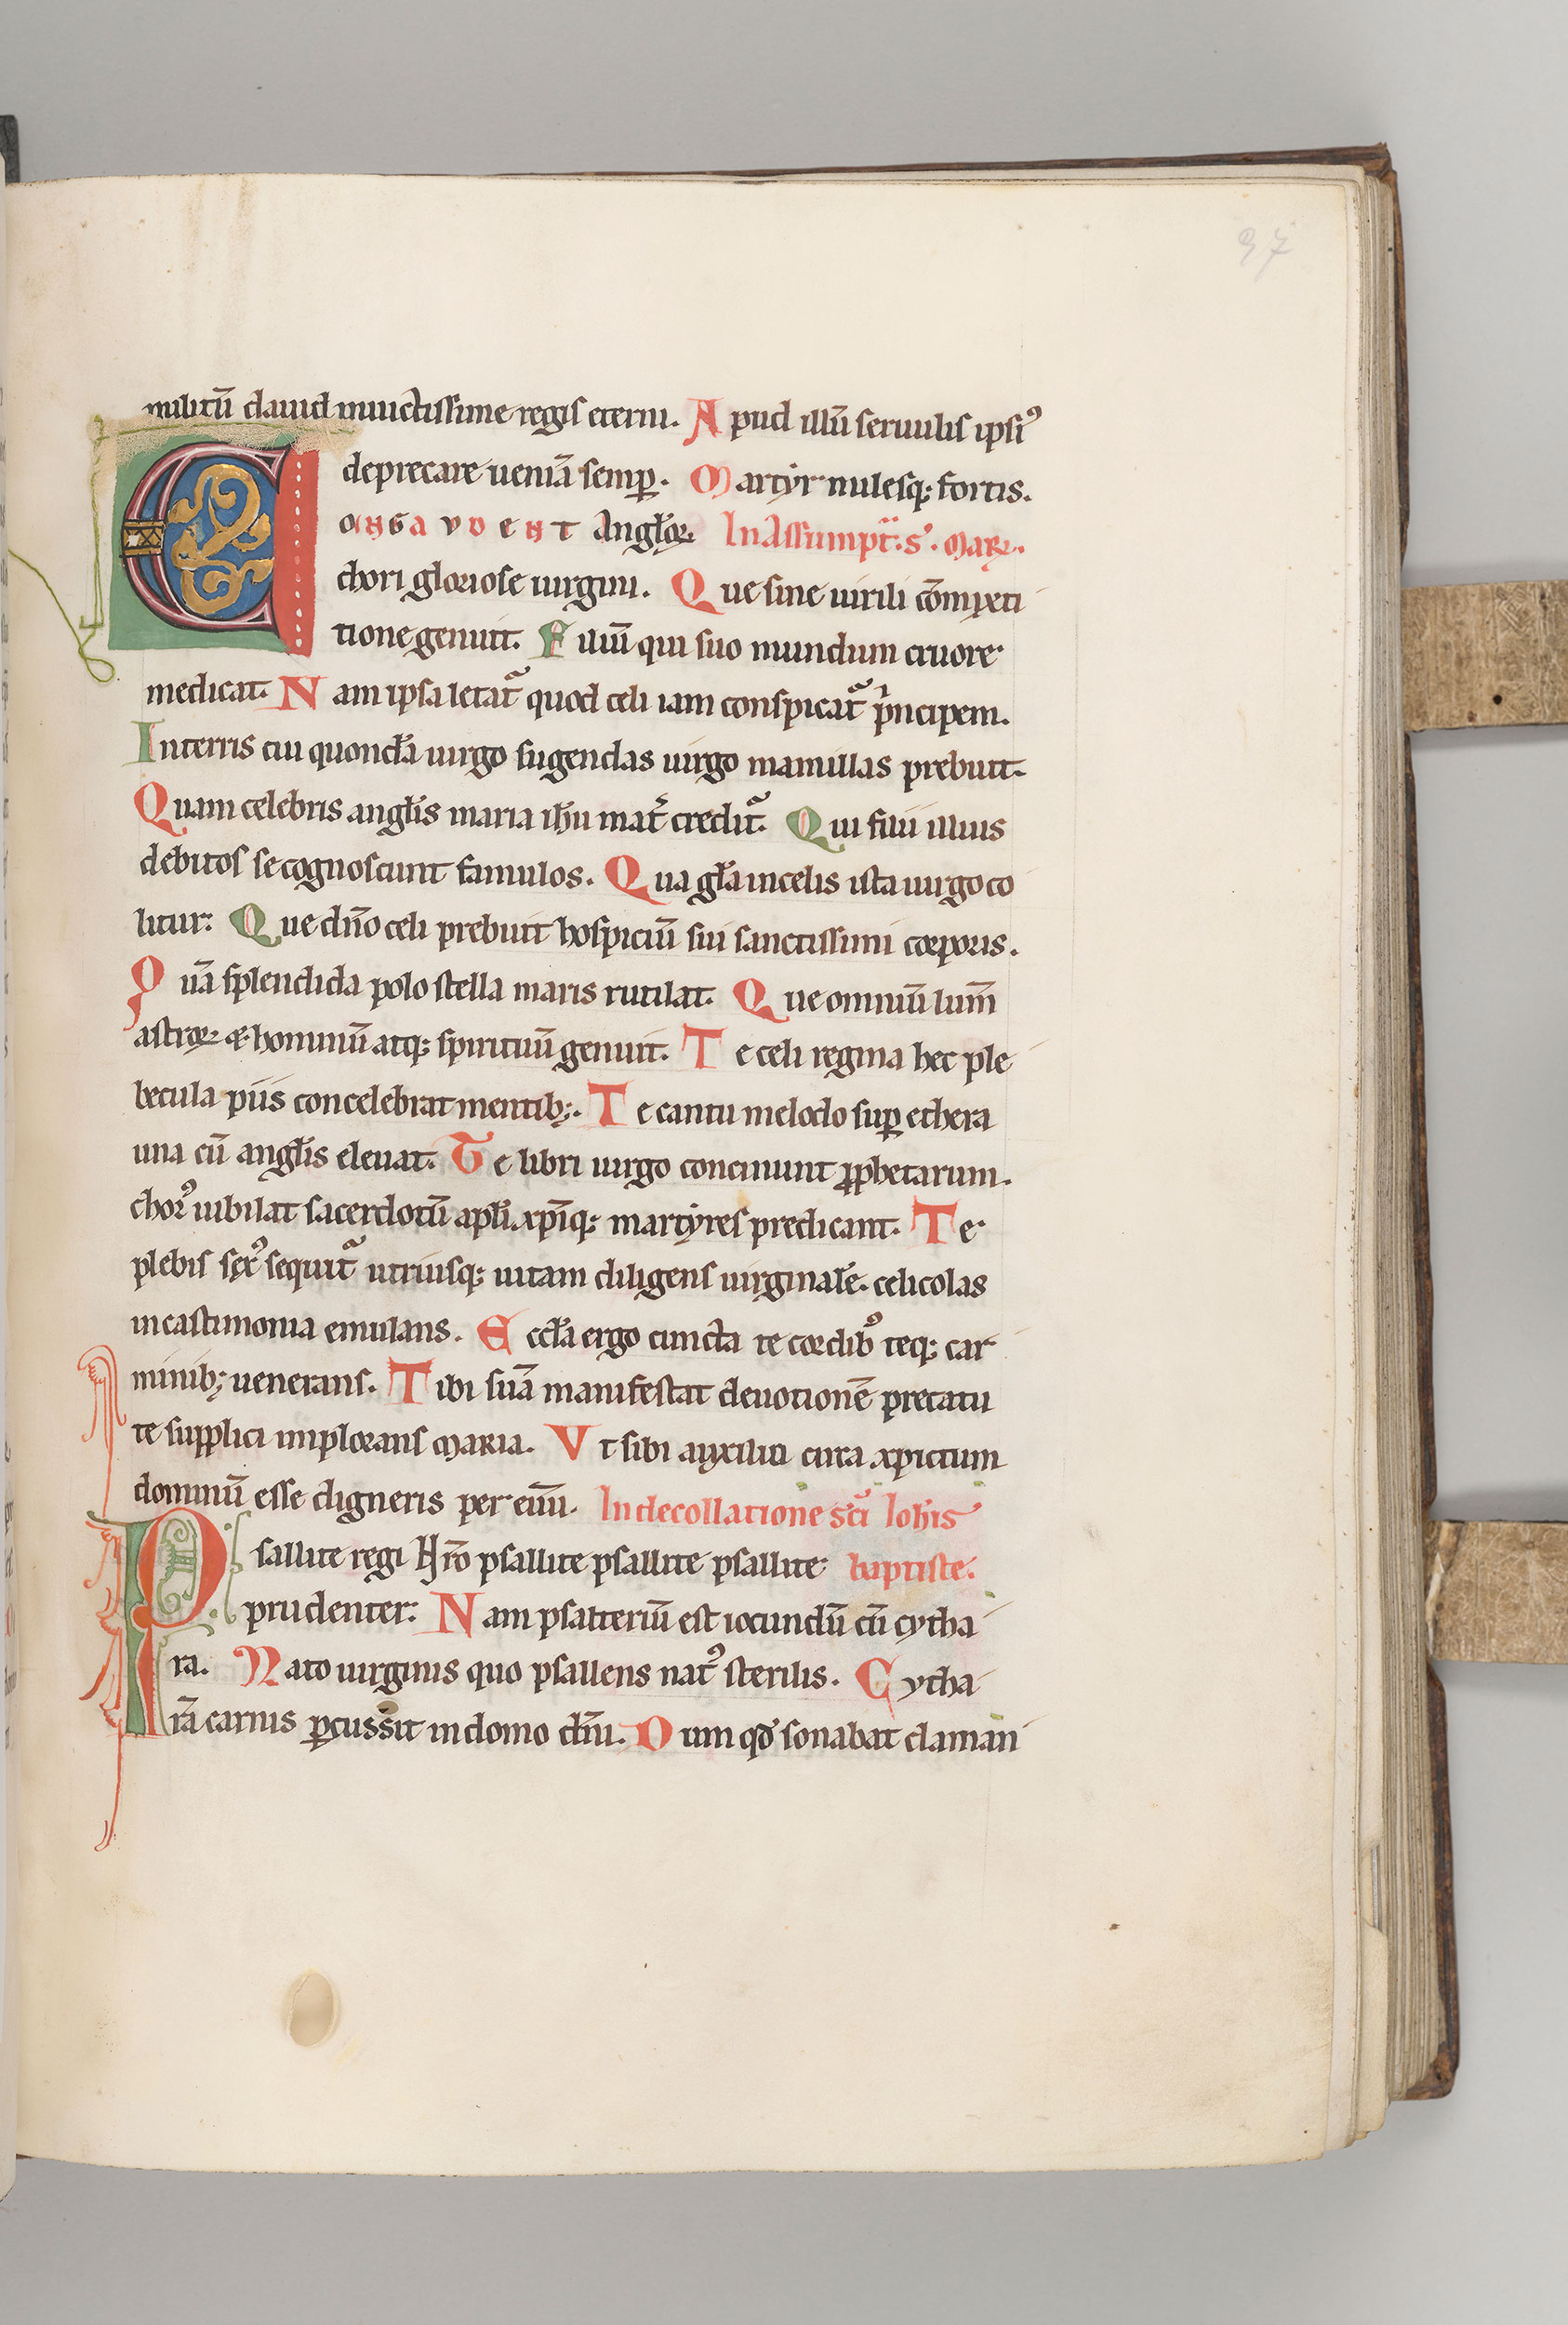 97
militū dauid inuictissime regis eterni. Apud illū seruulis ipsiꝰ
deprecare ueniā semꝑ. Martyr milesqꝫ fortis.
Congaudent Angl̄oꝝ In Assumpt̄. s̄. Marꝫ.
chori gloriose uirgini. Que sine uirili cōmixti
tione genuit. Filiū qui suo mundum cruore
medicat. Nam ipsa letat᷑ quod celi iam conspicat᷑ pͥncipem.
Interris cui quondā uirgo sugendas uirgo mamillas prebuit.
Quam celebris angl̄is maria ih̄u mat̄ credit᷑. Qui filii illius
debitos se cognoscunt famulos. Qua gl̄a incelis ista uirgo co
litur. Que dn̄o celi prebuit hospiciū sui sanctissimi corporis.
Quā splendida polo stella maris rutilat. Que omniū lum̄
astroꝝ & hominū atqꝫ spirituū genuit. Te celi regina hec ple
becula piis concelebrat mentibꝫ. Te cantu melodo suꝑ ethera
una cū angl̄is eleuat. Te libri uirgo concinunt ꝓphetarum.
chorꝰ iubilat sacerdotū apl̄i xp̄iqꝫ martyres predicant. Te
plebis sexꝰ sequit᷑ utriusqꝫ uitam diligens uirginalē. celicolas
incastimonia emulans. Eccl̄a ergo cuncta te cordibꝰ teqꝫ car
minibꝫ uenerans. Tibi suā manifestat deuotionē precatu
te supplici implorans maria. Vt sibi auxilio circa xpictum
dominū esse digneris per euū. In decollatione sc̄i Ioh̄is
Psallite regi nr̄o psallite psallite psallite baptiste.
prudenter. Nam psalteriū est iocundū cū cytha
ra. Nato uirginis quo psallens natꝰ sterilis. Cytha
rā carnis ꝑcussit in domo dn̄i. Dum qđ sonabat claman